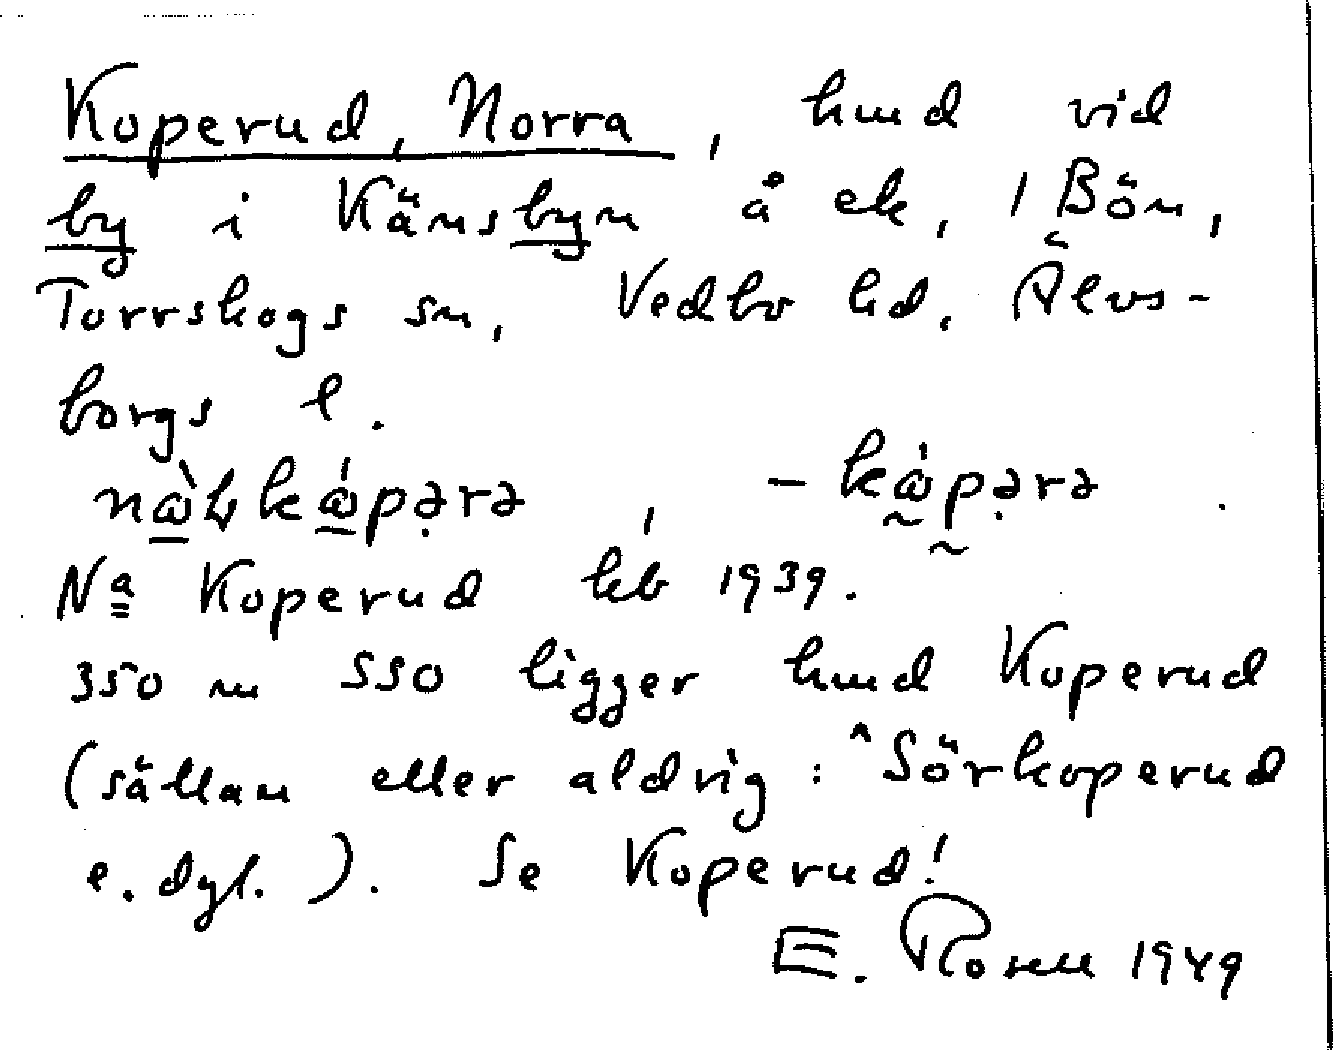 Koperud, Norra, hmd vid
by i Känsbyn å ek, 1 Bön,
Torrskogs sn, Vedbo hd. Älvs-
borgs l.
Na Koperud hb 1939.
350 m SSO ligger hmd Koperud
(sällan eller aldrig: ^Sörkoperud
e. dyl.). Se Koperud!
E. Rosell 1949